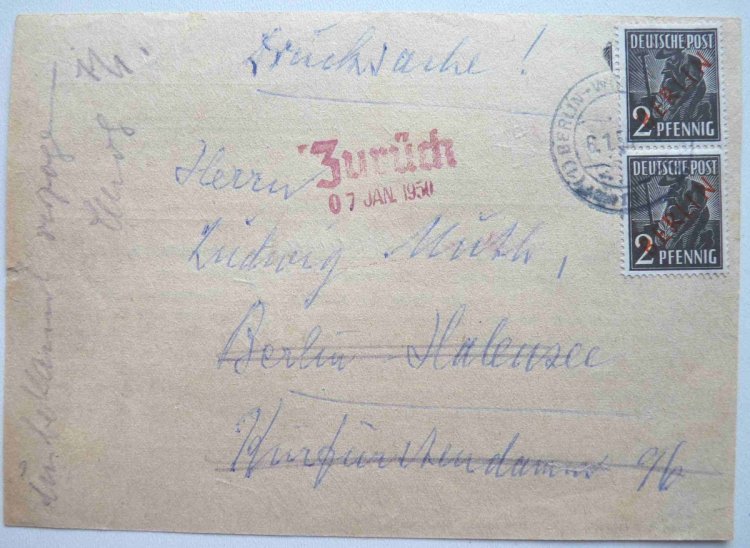 Drucksache!
DEUTSCHE POST
BERLIN
2 PFENNIG
DEUTSCHE POST
BERLIN
2 PFENNIG
(1) BERLIN-W
6.1.5
Zurück
07 JAN. 1950
Herrn
Ludwig Muth,
Berlin-Halensee
Kurfürstendamm 96
unbekannt verzogen